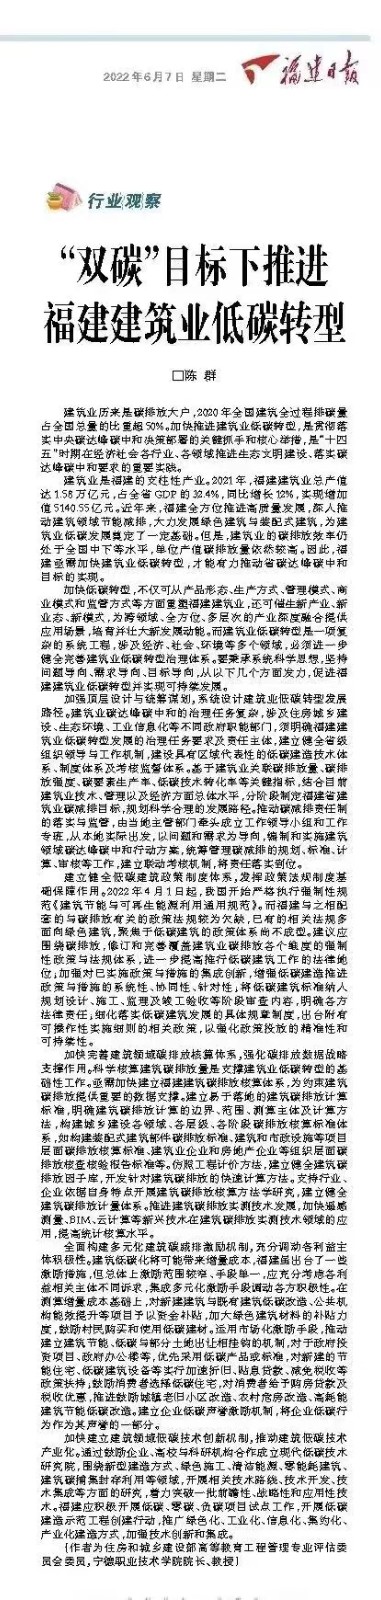 2022年6月7日 星期二
福建日报
行业观察
“双碳”目标下推进
福建建筑业低碳转型
□陈 群
建筑业历来是碳排放大户,2020年全国建筑全过程排碳量
占全国总量的比重超50%。加快推进建筑业低碳转型,是贯彻落
实中央碳达峰碳中和决策部署的关键抓手和核心举措,是“十四
五”时期在经济社会各行业、各领域推进生态文明建设、落实碳
达峰碳中和要求的重要实践。
建筑业是福建的支柱性产业。2021年,福建建筑业总产值
达1.58万亿元,占全省GDP的32.4%,同比增长12%,实现增加
值5140.55亿元。近年来,福建全方位推进高质量发展,深入推
动建筑领域节能减排,大力发展绿色建筑与装配式建筑,为建
筑业低碳发展奠定了一定基础。但是,建筑业的碳排放效率仍
处于全国中下等水平,单位产值碳排放量依然较高。因此,福
建亟需加快建筑业低碳转型,才能有力推动省碳达峰碳中和
目标的实现。
加快低碳转型,不仅可从产品形态、生产方式、管理模式、商
业模式和监管方式等方面重塑福建建筑业,还可催生新产业、新
业态、新模式,为跨领域、全方位、多层次的产业深度融合提供
应用场景,培育并壮大新发展动能。而建筑业低碳转型是一项复
杂的系统工程,涉及经济、社会、环境等多个领域,必须进一步
健全完善建筑业低碳转型治理体系。要秉承系统科学思想,坚持
问题导向、需求导向、目标导向,从以下几个方面发力,促进福
建建筑业低碳转型并实现可持续发展。
加强顶层设计与统筹谋划,系统设计建筑业低碳转型发展
路径。建筑业碳达峰碳中和的治理任务复杂,涉及住房城乡建
设、生态环境、工业信息化等不同政府职能部门,须明确福建建
筑业低碳转型发展的治理任务要求及责任主体,建立健全省级
组织领导与工作机制,建设具有区域代表性的低碳建造技术体
系、制度体系及考核监督体系。基于建筑业关联碳排放量、碳排
放强度、碳要素生产率、低碳技术转化率等关键指标,结合目前
建筑业技术、管理以及经济方面总体水平,分阶段制定福建省建
筑业碳减排目标,规划科学合理的发展路径。推动碳减排责任制
的落实与监管,由当地主管部门牵头成立工作领导小组和工作
专班,从本地实际出发,以问题和需求为导向,编制和实施建筑
领域碳达峰碳中和行动方案,统筹管理碳减排的规划、标准、计
算、审核等工作,建立联动考核机制,将责任落实到位。
建立健全低碳建筑政策制度体系,发挥政策法规制度基
础保障作用。2022年4月1日起,我国开始严格执行强制性规
范《建筑节能与可再生能源利用通用规范》。而福建与之相配
套的与碳排放有关的政策法规较为欠缺,已有的相关法规多
面向绿色建筑,聚焦于低碳建筑的政策体系尚不成型。建议应
围绕碳排放,修订和完善覆盖建筑业碳排放各个维度的强制
性政策与法规体系,进一步提高推行低碳建筑工作的法律地
位;加强对已实施政策与措施的集成创新,增强低碳建造推进
政策与措施的系统性、协同性、针对性;将低碳建筑标准纳入
规划设计、施工、监理及竣工验收等阶段审查内容,明确各方
法律责任;细化落实低碳建筑发展的具体规章制度,出台附有
可操作性实施细则的相关政策,以强化政策投放的精准性和
可持续性。
加快完善建筑领域碳排放核算体系,强化碳排放数据战略
支撑作用。科学核算建筑碳排放量是支撑建筑业低碳转型的基
础性工作。亟需加快建立福建建筑碳排放核算体系,为约束建筑
碳排放提供重要的数据支撑。建立易于落地的建筑碳排放计算
标准,明确建筑碳排放计算的边界、范围、测算主体及计算方
法,构建城乡建设各领域、各层级、各阶段碳排放核算标准体
系,如构建装配式建筑部件碳排放标准、建筑和市政设施等项目
层面碳排放核算标准、建筑业企业和房地产企业等组织层面碳
排放核查核验报告标准等。仿照工程计价方法,建立健全建筑碳
排放因子库,开发针对建筑碳排放的快速计算方法。支持行业、
企业依据自身特点开展建筑碳排放核算方法学研究,建立健全
建筑碳排放计量体系。推进建筑碳排放实测技术发展,加快遥感
测量、BIM、云计算等新兴技术在建筑碳排放实测技术领域的应
用,提高统计核算水平。
全面构建多元化建筑碳减排激励机制,充分调动各利益主
体积极性。建筑低碳化将可能带来增量成本,福建虽出台了一些
激励措施,但总体上激励范围较窄、手段单一,应充分考虑各利
益相关主体不同诉求,集成多元化激励手段调动各方积极性。在
测算增量成本基础上,对新建建筑与既有建筑低碳改造、公共机
构能效提升等项目予以资金补贴,加大绿色建筑材料的补贴力
度,鼓励村民购买和使用低碳建材。运用市场化激励手段,推动
建立建筑节能、低碳与部分土地出让相挂钩的机制,对于政府投
资项目、政府办公楼等,优先采用低碳产品或标准,对新建的节
能住宅、低碳建筑设备等实行加速折旧、贴息贷款、减免税收等
政策扶持;鼓励消费者选择低碳住宅,对消费者给予购房贷款及
税收优惠,推进鼓励城镇老旧小区改造、农村危房改造、高耗能
建筑节能低碳改造。建立企业低碳声誉激励机制,将企业低碳行
为作为其声誉的一部分。
加快建立建筑领域低碳技术创新机制,推动建筑低碳技术
产业化。通过鼓励企业、高校与科研机构合作成立现代低碳技术
研究院,围绕新型建造方式、绿色施工、清洁能源、零能耗建筑、
建筑碳捕集封存利用等领域,开展相关技术路线、技术开发、技
术集成等方面的研究,着力突破一批前瞻性、战略性和应用性技
术。福建应积极开展低碳、零碳、负碳项目试点工作,开展低碳
建造示范工程创建行动,推广绿色化、工业化、信息化、集约化、
产业化建造方式,加强技术创新和集成。
(作者为住房和城乡建设部高等教育工程管理专业评估委
员会委员,宁德职业技术学院院长、教授)